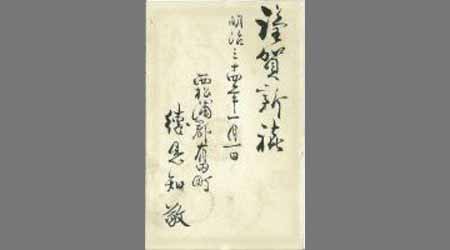 謹賀新禧
明治三十四年一月一日
西松浦郡有田町
徳見知敬